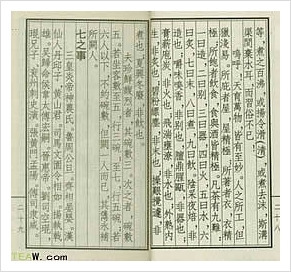 等,煮之百沸,或揚令滑〔清〕,或煮去沫,斯溝
渠間棄水耳,而習俗不已
於戲!天育萬物,皆有至妙,人之所工,但
獵淺易。所庇者屋,屋精極,所著者衣,衣精
極,所飽者飲食,食與酒皆精極。凡茶有九難:
一曰造,二曰別,三曰器,四曰火,五曰水,六
曰炙,七曰末,八曰煮,九曰飲。陰采夜焙,非
造也,嚼味嗅香,非別也,羶鼎腥甌,非器也,
膏薪庖炭,非火也,飛湍壅潦,非水也,外熟內
生,非炙也,碧粉縹塵,非末也,操艱攪遽,非
二十八
煮也,夏興冬廢,非飲也。
夫珍鮮馥烈者,其碗數三,次之者,碗數
五。若坐客數至五,行三碗,至七,行五碗。若
六人以下,不約碗數,但闕一人而已,其雋永補
所闕人。
七之事
三皇炎帝神農氏。周魯周公旦。齊相晏嬰。漢
仙人丹丘子,黃山君,司馬文園令相如,揚執戟
雄。吳歸命侯,韋太傅弘嗣。晉惠帝,劉司空琨,
琨兄子,兗州刺史演,張黃門孟陽,傅司隸咸,
二十九
TEAW.com